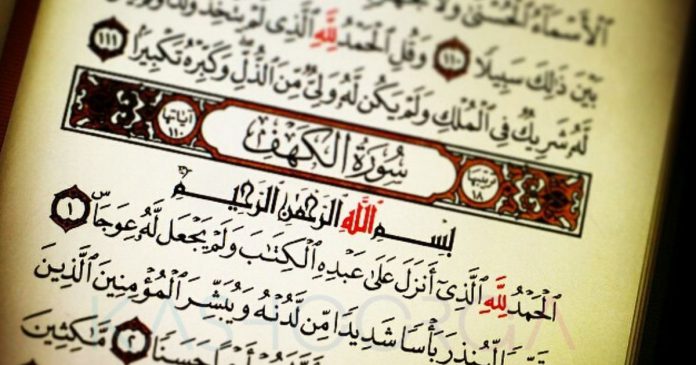 الْأَسْمَاءُ الْحُسْنَىٰ وَلَا تَجْهَرْ
بَيْنَ ذَٰلِكَ سَبِيلًا ١١٠ وَقُلِ الْحَمْدُ لِلَّهِ الَّذِي لَمْ يَتَّخِذْ وَلَدًا وَلَمْ يَكُن
لَّهُ شَرِيكٌ فِي الْمُلْكِ وَلَمْ يَكُن لَّهُ وَلِيٌّ مِّنَ الذُّلِّ وَكَبِّرْهُ تَكْبِيرًا ١١١
ترتيبها ١٨ سُورَةُ الْكَهْفِ آياتها ١١٠
بِسْمِ اللَّهِ الرَّحْمَٰنِ الرَّحِيمِ
الْحَمْدُ لِلَّهِ الَّذِي أَنزَلَ عَلَىٰ عَبْدِهِ الْكِتَابَ وَلَمْ يَجْعَل لَّهُ عِوَجًا ١
قَيِّمًا لِّيُنذِرَ بَأْسًا شَدِيدًا مِّن لَّدُنْهُ وَيُبَشِّرَ الْمُؤْمِنِينَ الَّذِينَ
أَجْرًا حَسَنًا ٢ مَّاكِثِينَ